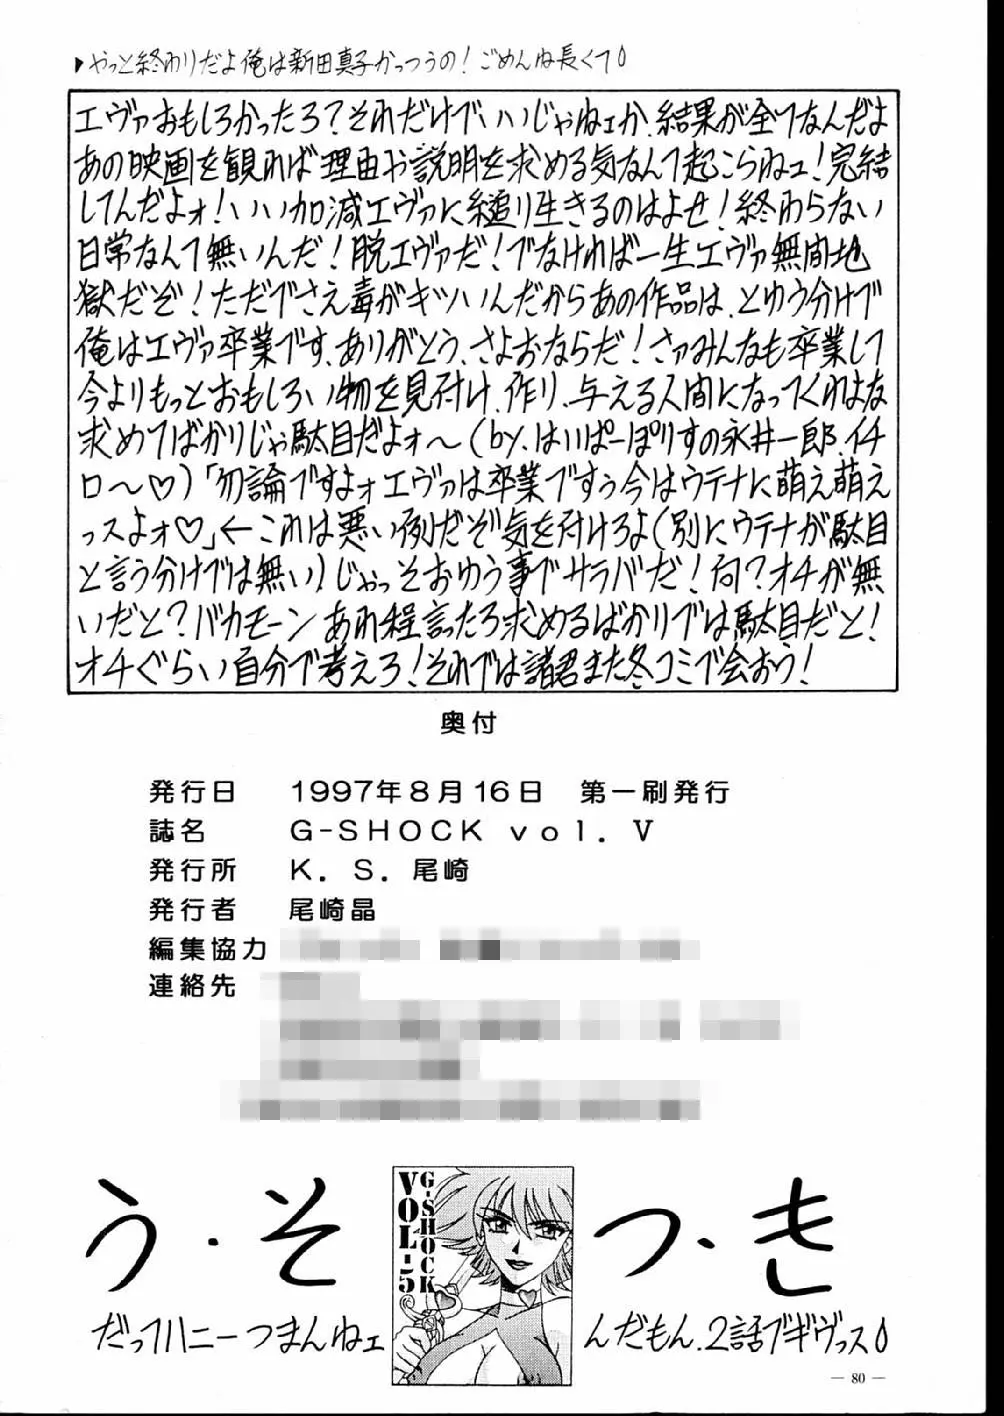 ▶やっと終わりだよ俺は新田真子かっつうの！ごめんね長くて
エヴァおもしろかったろ？それだけでいいじゃねェか、結果が全てなんだよ
あの映画を観れば理由や説明を求める気なんて起こらねェ！完結
してんだよォ！いい加減エヴァに縋り生きるのはよせ！終わらない
日常なんて無いんだ！脱エヴァだ！でなければ一生エヴァ無間地
獄だぞ！ただでさえ毒がキツいんだからあの作品は、とゆう分けで
俺はエヴァ卒業です、ありがとう、さよおならだ！さァみんなも卒業して
今よりもっとおもしろい物を見付け、作り、与える人間になってくれよな
求めてばかりじゃ駄目だよォ〜（by、はいぱーぽりすの永井一郎、イチ
ロ〜♡）「勿論ですよォエヴァは卒業ですぅ今はウテナに萌え萌え
っスよォ♡」←これは悪い例だぞ気を付けろよ（別にウテナが駄目
と言う分けでは無い）じゃっそおゆう事でサラバだ！何？オチが無
いだと？バカモーンあれ程言ったろ求めるばかりでは駄目だと！
オチぐらい自分で考えろ！それでは諸君また冬コミで会おう！
奥付
発行日　1997年8月16日　第一刷発行
誌名　G-SHOCK vol. V
発行所　K. S. 尾崎
発行者　尾崎晶
編集協力
連絡先
う・そ　つ・き
G-SHOCK
VOL-5
だってハニーつまんねェ　んだもん、2話でギヴっス
— 80 —